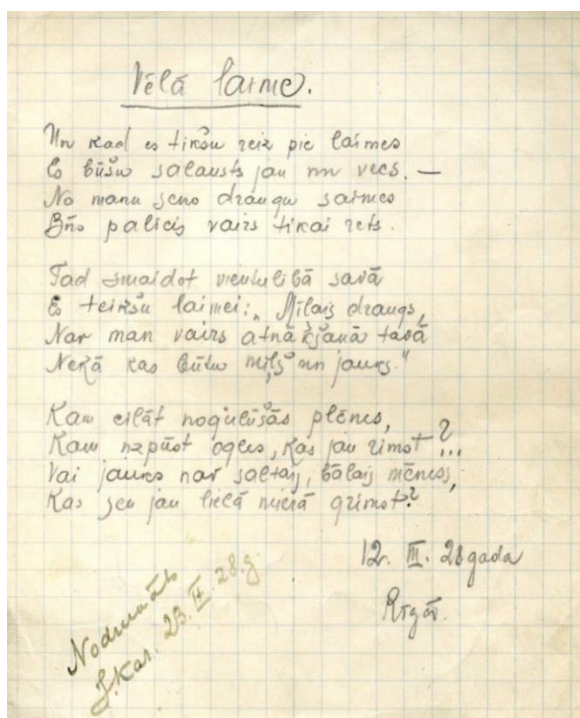 Vēlā laime.
Un kad es tikšu reiz pie laimes
Es būšu salauzts jau un vecs. —
No manu seno draugu saimes
Būs palicis vairs tikai rets.
Tad smaidot vientulībā savā
Es teikšu laimei: „Mīlais draugs,
Nav man vairs atnākšanā tavā
Nekā kas būtu mīļš un jauks."
Kam cilāt nogulušās plēnes,
Kam uzpūst ogles, kas jau zimst?...
Vai jauks nav saltais, bālais mēness,
Kas sen jau lielā mierā grimst?
12. III. 28 gada
Rīgā.
Nodrukāts
J. Kar. 23. II. 28. g.